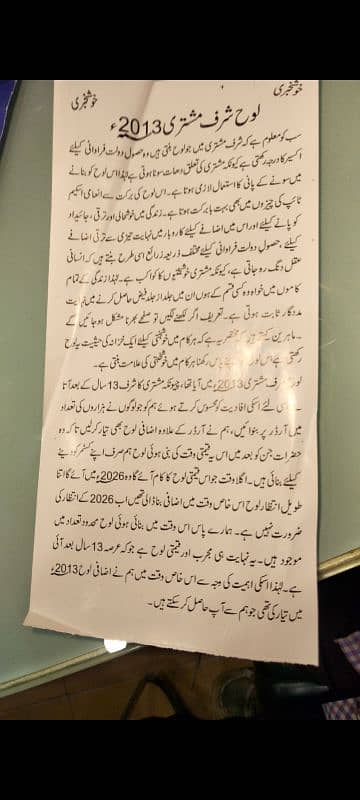 خوشخبری
خوشخبری
لوح شرف مشتری 2013ء
سب کو معلوم ہے کہ شرف مشتری میں جو لوح بنتی ہیں وہ حصول دولت فراوانی کیلئے
اکسیر کا درجہ رکھتی ہے کیونکہ مشتری کی تعلق دھات سونا ہوتی ہے لہٰذا اس لوح کو بنانے
میں سونے کے پانی کا استعمال لازمی ہوتا ہے۔ اس لوح کی برکت سے انعامی اسکیم
ٹائپ کی چیزوں میں بھی بہت بابرکت ہوتا ہے۔ زندگی میں خوشحالی اور ترقی، جائیداد
کو پانے کیلئے اور اس میں اضافے کیلئے کاروبار میں نہایت تیزی سے ترقی اضافے
کیلئے، حصول دولت فراوانی کیلئے مختلف ذریعہ ذرائع اسی طرح بنتے ہیں کہ انسانی
عقل دنگ رہ جاتی ہے، کیونکہ مشتری خوشبختیوں کا کواکب ہے۔ لہٰذا زندگی کے تمام
کاموں میں خواہ وہ کسی قسم کے ہوں ان میں جلد از جلد فیض حاصل کرنے میں نہایت
مددگار ثابت ہوتی ہے۔ تعریف اگر لکھنے لگیں تو صفحے بھرنا مشکل ہو جائیں گے
۔ ماہرین کہتے ہیں کہ مختصر یہ ہے کہ ہر کام میں خوشبختی کیلئے ایک خزانہ کی حیثیت یہ لوح
رکھتی ہے اس لوح پاس رکھنا ہر کام میں خوشبختی کی علامت بنتی ہے۔
لوح شرف مشتری 2013ء میں آیا تھا، چونکہ مشتری کا شرف 13 سال کے بعد آتا
اسی لئے اسکی افادیت کو محسوس کرتے ہوئے ہم کو جو لوگوں نے ہزاروں کی تعداد
میں آرڈر پر بنوائیں، ہم نے آرڈر کے علاوہ اضافی لوح بھی تیار کر لیں تا کہ وہ
حضرات جن کو بعد میں اس یہ قیمتی وقت کی بنی ہوئی لوح ہم صرف اپنے کسٹمر کو دینے
کیلئے بنائی ہیں۔ اگلا وقت جو اس قیمتی لوح کا کام آئے گا وہ 2026ء میں آئے گا اتنا
طویل انتظار لوح اس خاص وقت میں اضافی بنا ڈالی تھیں اب 2026 کے انتظار کی
ضرورت نہیں ہے۔ ہمارے پاس اس وقت میں بنائی ہوئی لوح محدود تعداد میں
موجود ہیں۔ یہ نہایت ہی مجرب اور قیمتی لوح ہے جو کہ عرصہ 13 سال بعد آئی
ہے۔ لہٰذا اسکی اہمیت کی وجہ سے اس خاص وقت میں ہم نے اضافی لوح 2013ء
میں تیار کی تھی جو ہم سے آپ حاصل کر سکتے ہیں۔